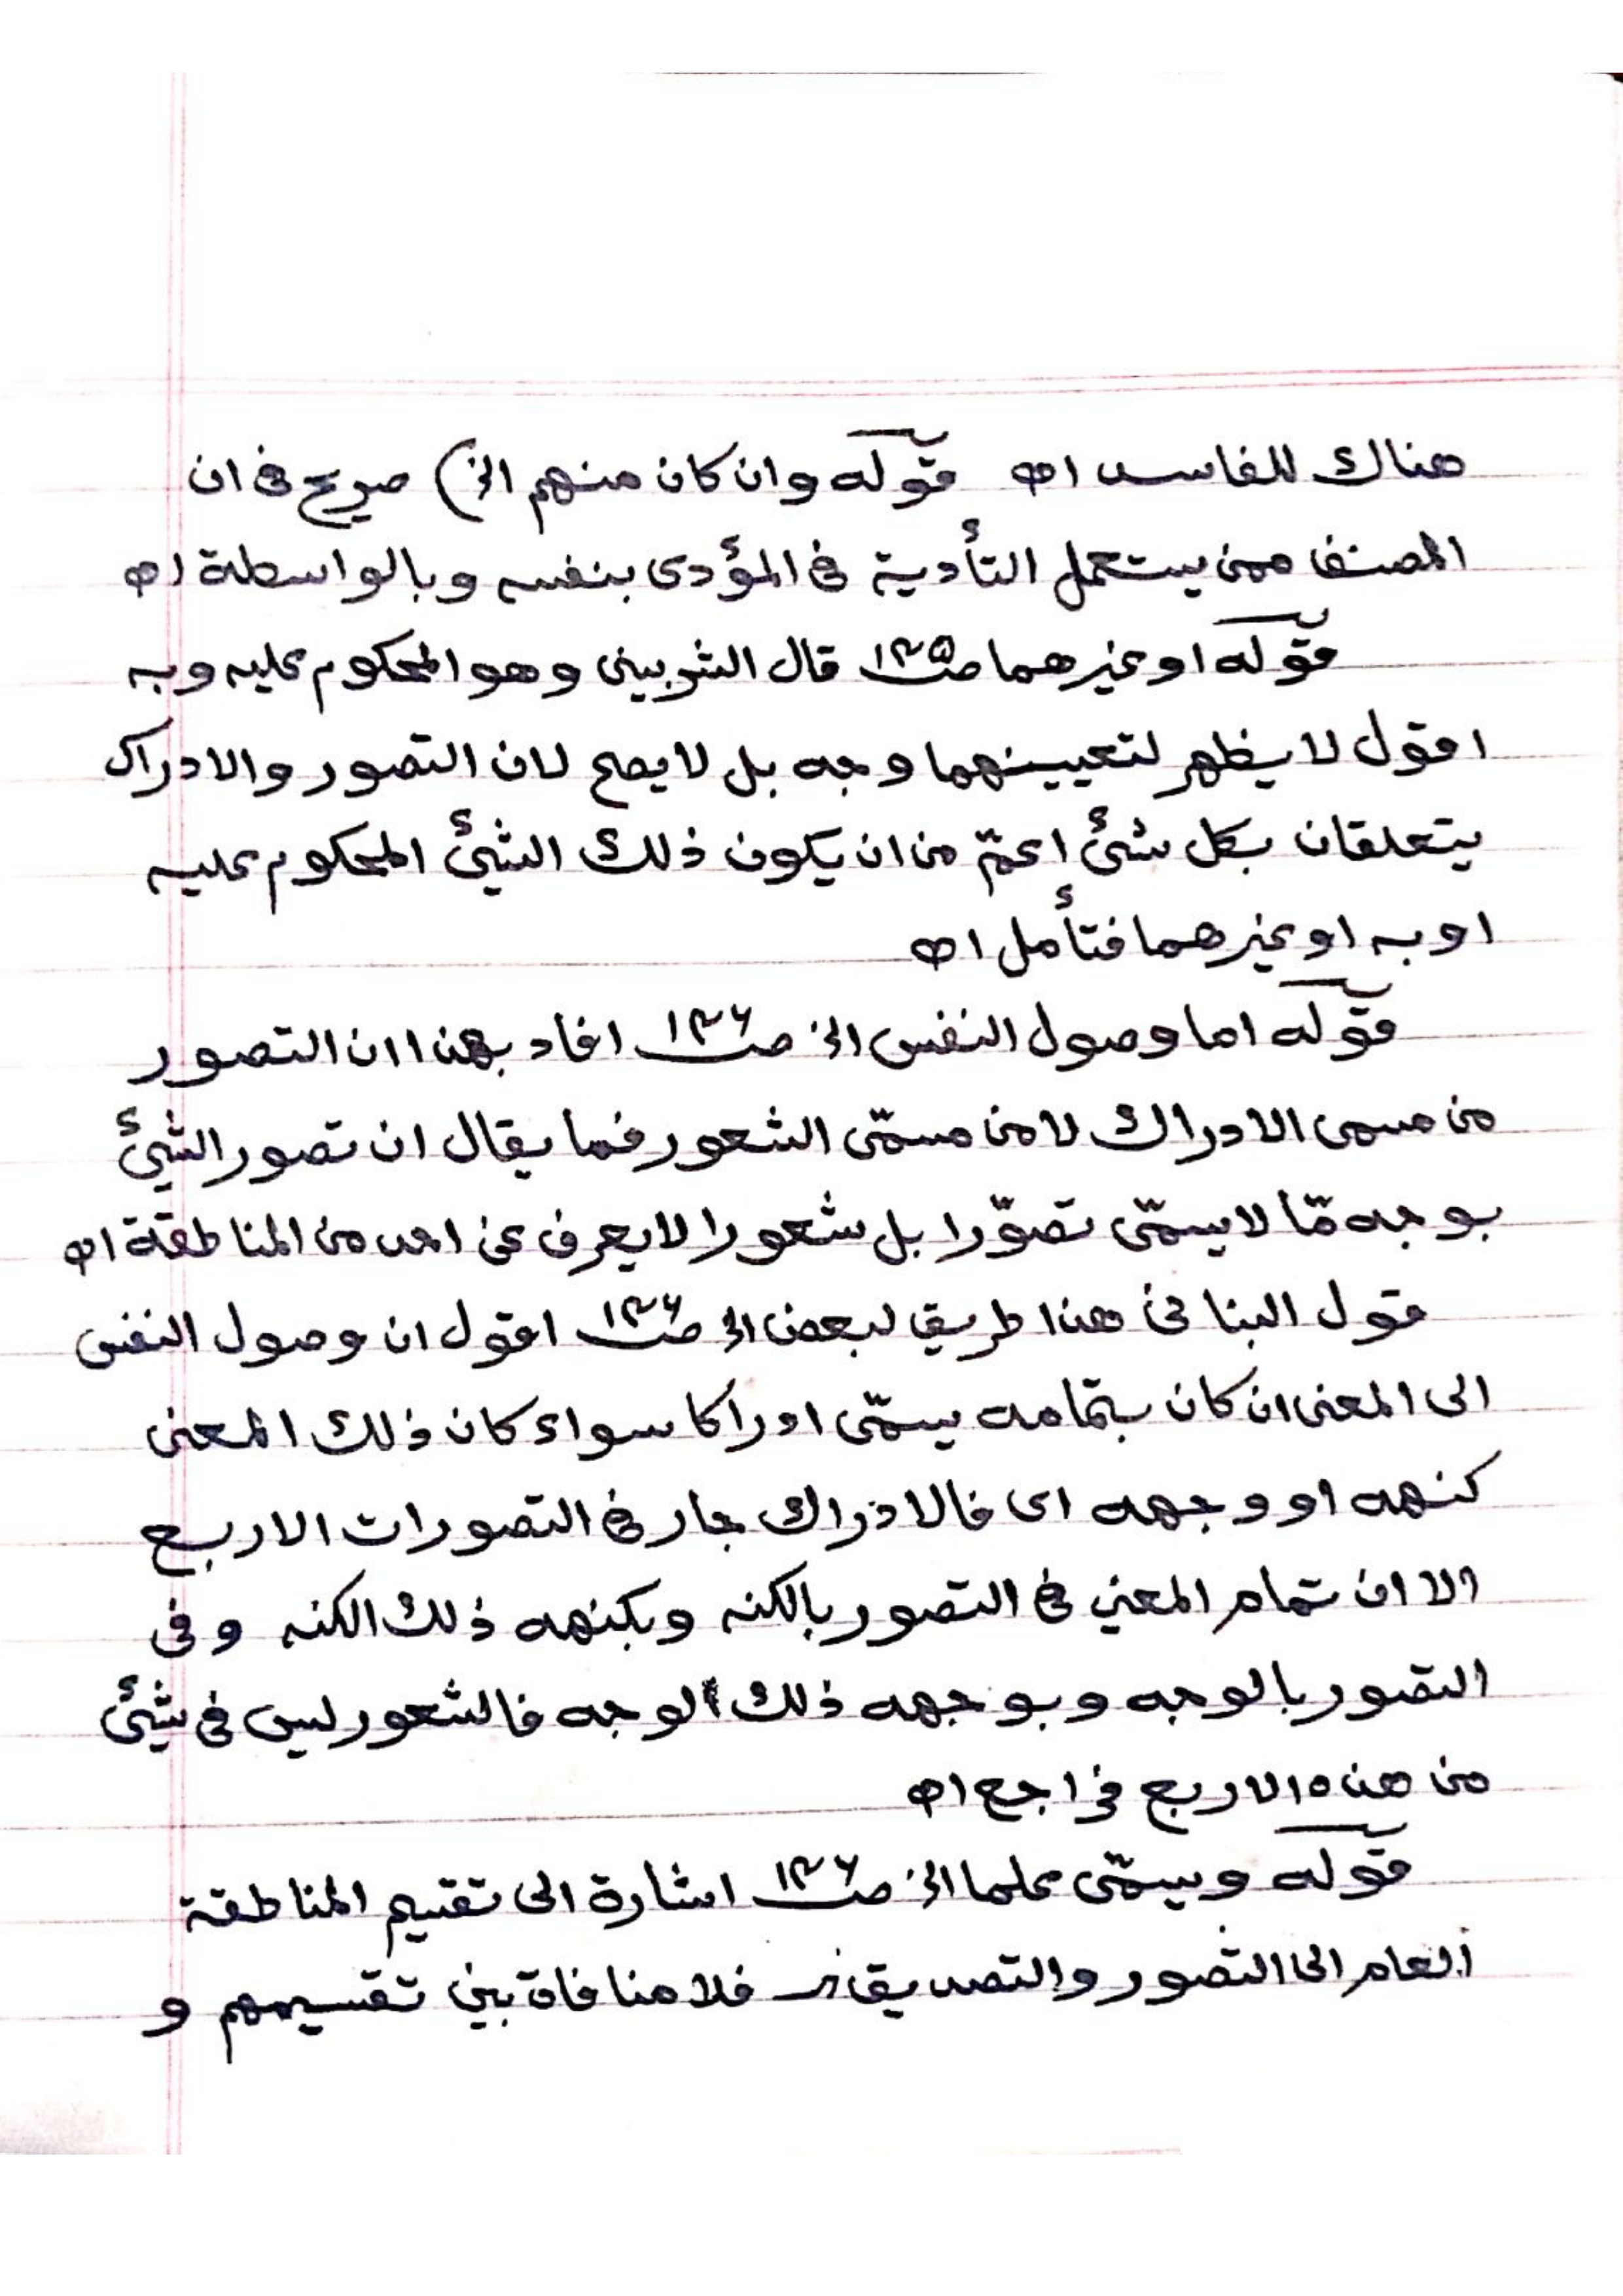 هناك للفاسد اه قوله وان كان منهم الخ) صريح في ان
المصنف ممن يستعمل التأدية في المؤدى بنفسه وبالواسطة اه
قوله او غيرهما صـ١٤٥ قال الشربيني وهو المحكوم عليه وبه
اقول لا يظهر لتعيينهما وجه بل لا يصح لان التصور والادراك
يتعلقان بكل شئ اعمّ من ان يكون ذلك الشيئ المحكوم عليه
او به او غيرهما فتأمل اه
قوله اما وصول النفس الخ صـ١٤٦ افاد بهذا ان التصور
من مسمى الادراك لا من مسمّى الشعور فما يقال ان تصور الشيئ
بوجه مّا لا يسمّى تصوّرا بل شعورا لا يعرف عن احد من المناطقة اه
قول البناني هذا طريق لبعض الخ صـ١٤٦ اقول ان وصول النفس
الى المعنى ان كان بتمامه يسمّى ادراكا سواء كان ذلك المعنى
كنهه او وجهه اى فالادراك جار في التصورات الاربع
الا ان تمام المعنى في التصور بالكنه وبكنهه ذلك الكنه وفى
التصور بالوجه وبوجهه ذلك الوجه فالشعور ليس في شيئ
من هذه الاربع فراجع اه
قوله ويسمّى علما الخ صـ١٤٦ اشارة الى تقسيم المناطقة
العلم الى التصور والتصديق فلا منافاة بين تقسيمهم و